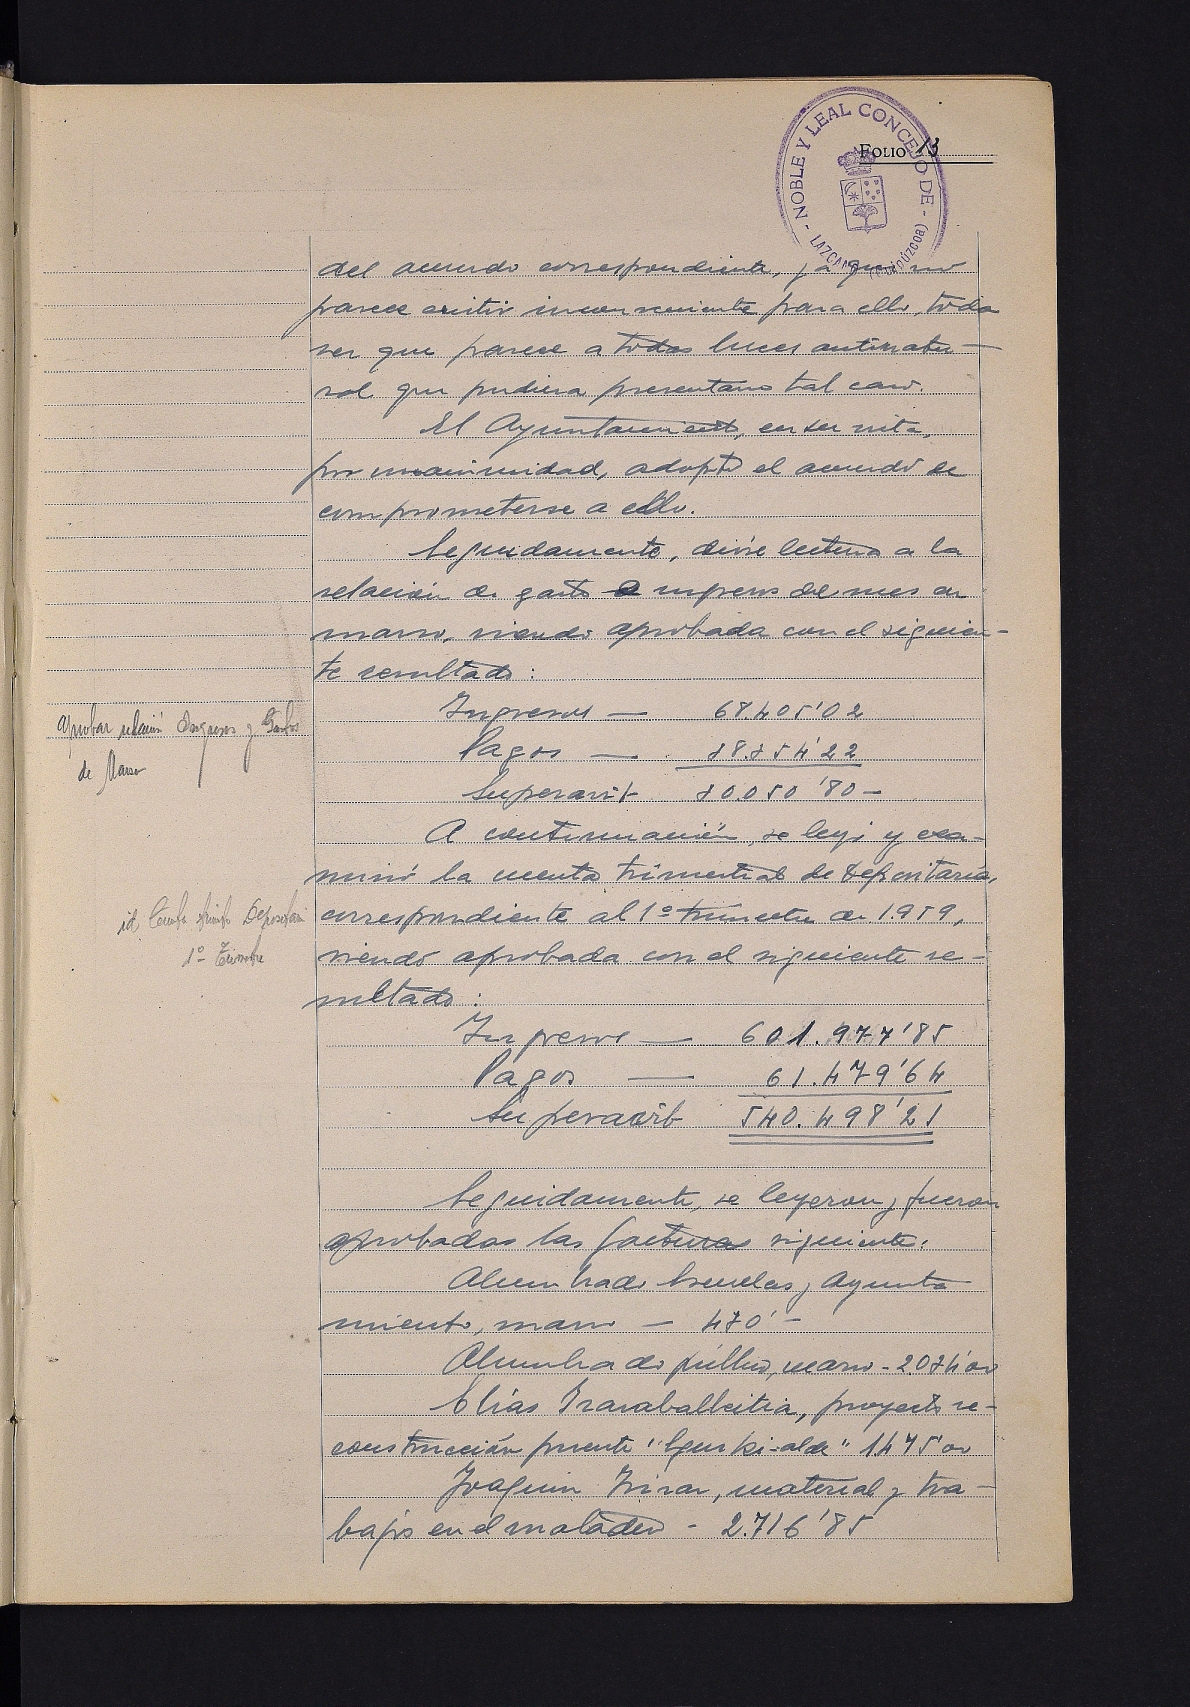 NOBLE Y LEAL CONCEJO DE - LAZCANO (Guipúzcoa) -
FOLIO 13
del acuerdo correspondiente, ya que no
parece existir inconveniente para ello, toda
vez que parece a todas luces antinatu-
ral que pudiera presentarse tal caso.
El Ayuntamiento, en su vista,
por unanimidad, adoptó el acuerdo de
comprometerse a ello.
Seguidamente, dióse lectura a la
relación de gastos e ingresos del mes de
marzo, siendo aprobada con el siguien-
te resultado:
Ingresos — 68.405'02
Aprobar relación Ingresos y Gastos
Pagos — 38.354'22
de Marzo
Superavit 30.050'80 -
A continuación, se leyó y exa-
minó la cuenta trimestral de Depositaría,
id. Cuenta Depositaría
correspondiente al 1º trimestre de 1.959,
1º Trimestre
siendo aprobada con el siguiente re-
sultado:
Ingresos — 601.977'85
Pagos — 61.479'64
Superavit 540.498'21
Seguidamente, se leyeron y fueron
aprobadas las facturas siguiente:
Alumbrado Escuelas y Ayunta
miento, marzo — 470' -
Alumbrado público, marzo - 2.034'00
Elías Irarabalbeitia, proyecto re-
construcción puente 1475'00
Joaquin material y tra-
bajos en el matadero - 2.716'85